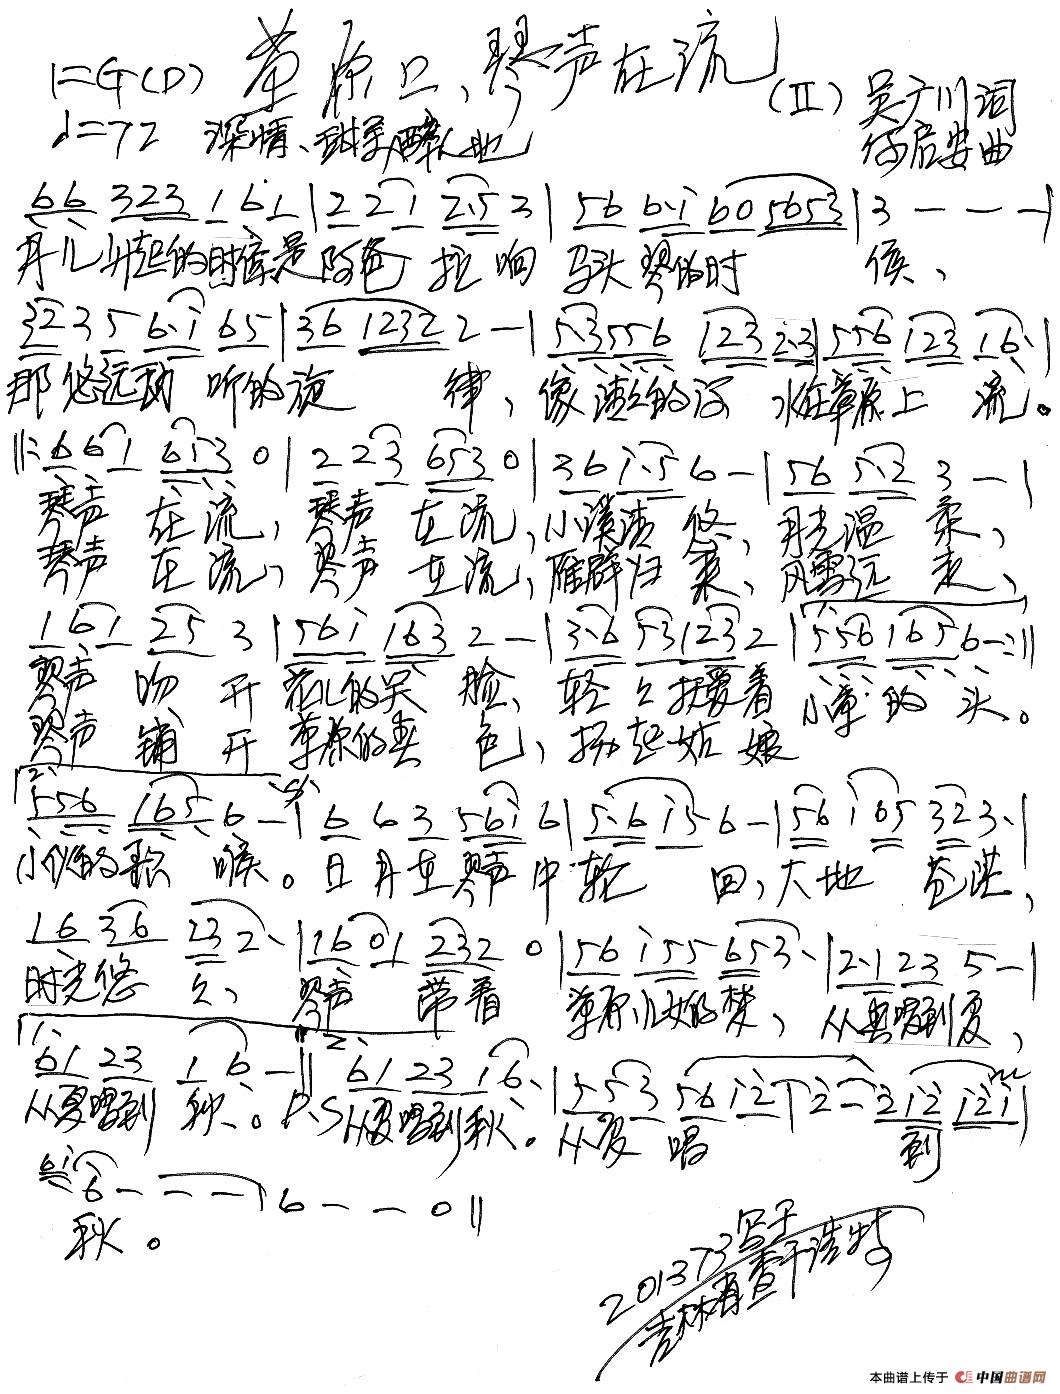 1=G(D) 草原上,琴声在流
(Ⅱ) 吴广川词
♩=72 深情、甜美、醉人地
何启安曲
6 6 3 2 3 1 6 1 | 2 2 1 2·5 3 | 5 6 6·1 6 0 5 6 5 3 | 3 - - - |
月儿升起的时候是阿爸 拉响 马头琴的时 候、
3 2 3 5 6·1 6 5 | 3 6 1 2 3 2 2 - | 5·3 5 5 6 1 2 3 2·3 | 5 5 6 1 2 3 1 6· |
那悠远动听的旋 律、像清清的河水在草原上 流。
‖: 6 6 1 6 5 3 0 | 2 2 3 6 5 3 0 | 3 6 1·5 6 - | 5 6 5·2 3 - - |
琴声 在流,琴声 在流,小溪清 悠、月光温 柔、
琴声 在流,琴声 在流,雁群归 来、风雪远 走、
1 6 1 2 5 3 | 5 6 1 1 6 3 2 - | 3·6 5 3 1 2 3 2 | 1. 5 5 6 1 6 5 6 - :‖
琴声 吻 开 花儿的笑 脸、轻轻抚爱着 小草的 头。
琴声 铺 开 草原的春 色,扬起姑娘
2. 5 5 6 1 6 5 6 - | 6 6 3 5 6 1 6 | 5·6 1 5 6 - | 5 6 1 6 5 3 2 3· |
小伙的歌 喉。日月在琴声中轮 回,大地 苍茫,
1 6 3 6 2 3 2· | 1 6 0 1 2 3 2 0 | 5 6 1 5 5 6 5 3· | 2·1 2 3 5 - |
时光悠 久、琴声 带着 草原儿女的梦,从春唱到夏,
1. 6 1 2 3 1 6 - ‖ 2. 6 1 2 3 1 6· | 5 5 3 5 6 1 2 | 2 - 2 1 2 1 2 1 |
从夏唱到 秋、。D.S 从夏唱到秋。从夏 唱 到
6 1 6 - - - | 6 - - 0 ‖
秋。
201373写于
吉林省查干浩特
本曲谱上传于 中国曲谱网